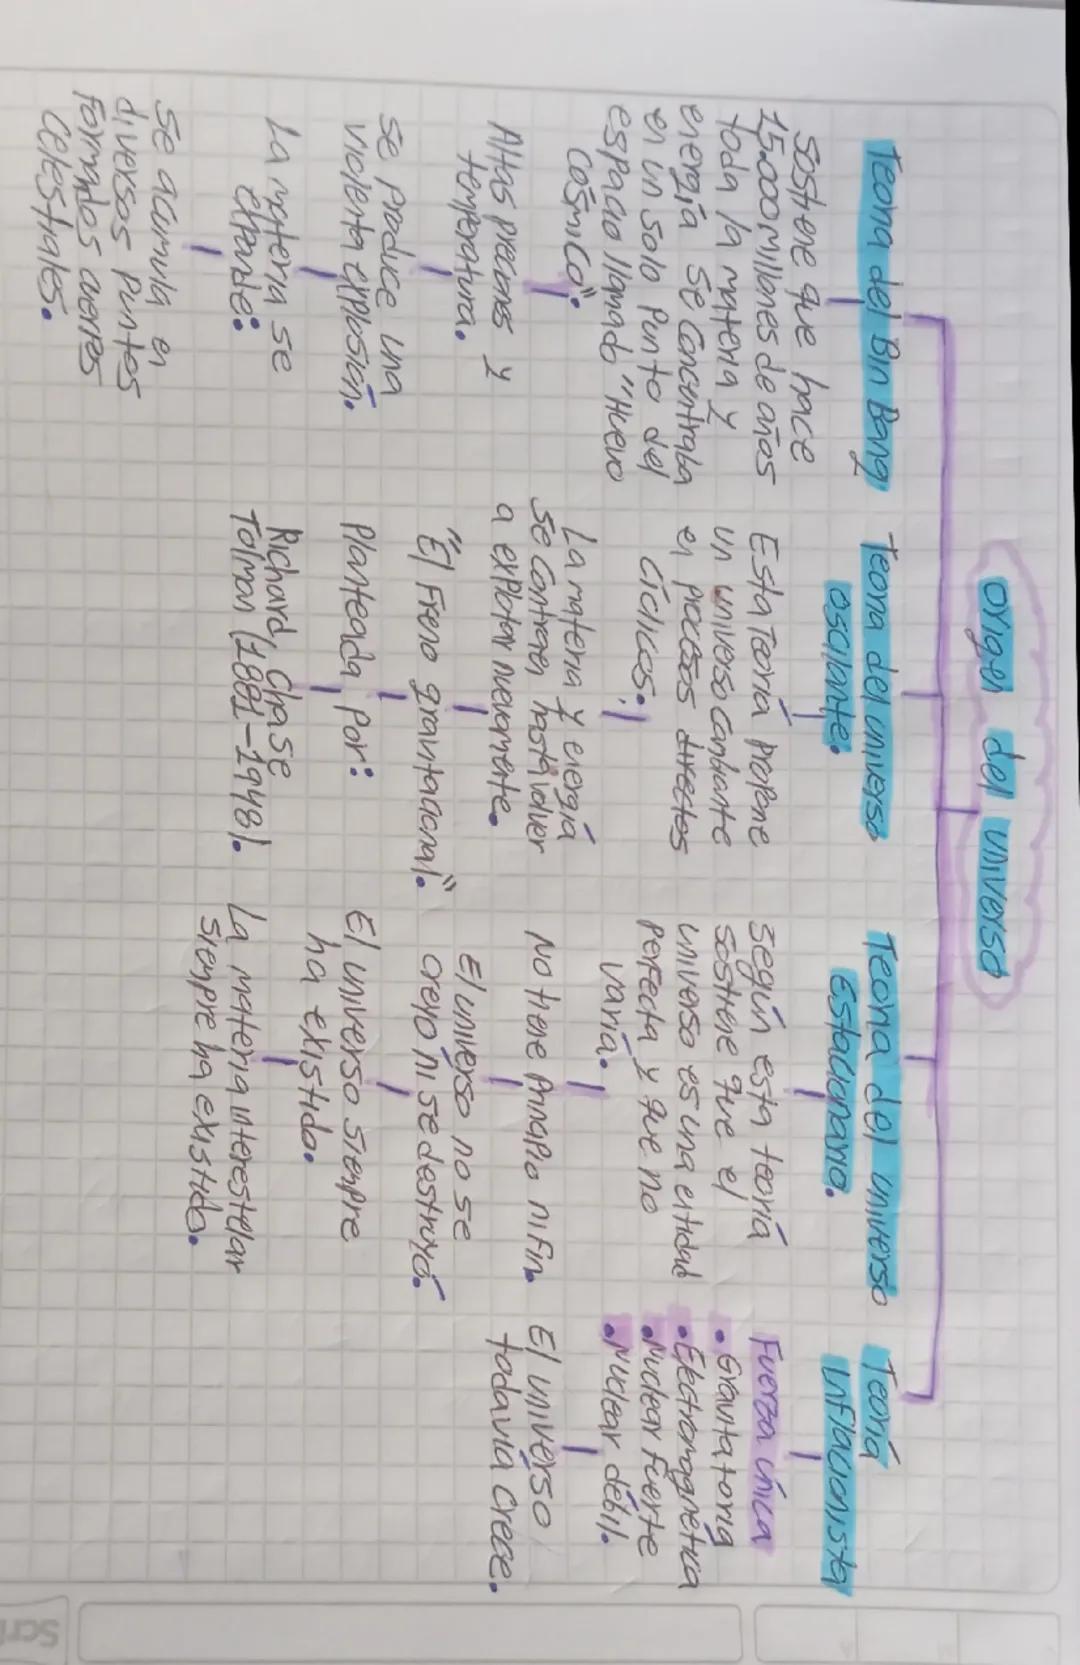 Origen del universo
Teoria del Bin Bang
Sostiene que hace
15.000 Millones de años
toda la materia y
energía se Concentraba
en un solo Punto del
espacio llamado "Huevo
Cósmico".
Altas preciones y
temperatura.
Se produce una
violenta explosión.
La materia se
expande:
Se acumula en
diversos puntos
formando cuerpos
Celestiales.
Teoria del universo
oscilante.
Esta Teoría propene
un universo cambiante
en procesos directos
Cíclicos.
La materia y energía
Se contraen hasta volver
a explotar nuevamente.
"El Freno gravitacional".
Planteada Por:
Richard, Chase
Tolman (1881-1948).
Teoria del universo
Estacionario.
Según esta teoría
sostiene que el
universo es una entidad
perfecta y que no
varía.
No tiene Principio ni fin.
El universo no se
creó ni se destruyó.
El universo siempre
ha existido.
La materia interestelar
siempre ha existido.
Teoría
inflacionista
Fuerza única
• Gravitatoria
• Electromagnetica
• Nuclear fuerte
• Nuclear débil.
El universo
todavía crece.
Scri